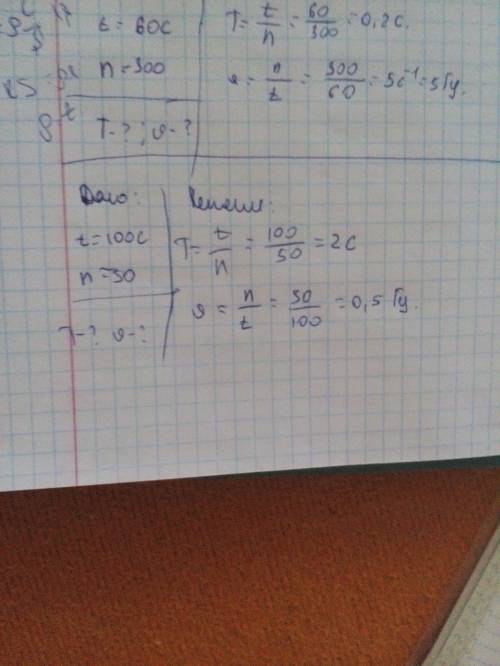 t = 60с
n = 300
T-? ; υ-?
T = t/n = 60/300 = 0,2 с.
υ = n/t = 300/60 = 5с⁻¹ = 5 Гц.
Дано:
t = 100с
n = 50
T-? υ-?
Решение:
T = t/n = 100/50 = 2с
υ = n/t = 50/100 = 0,5 Гц.